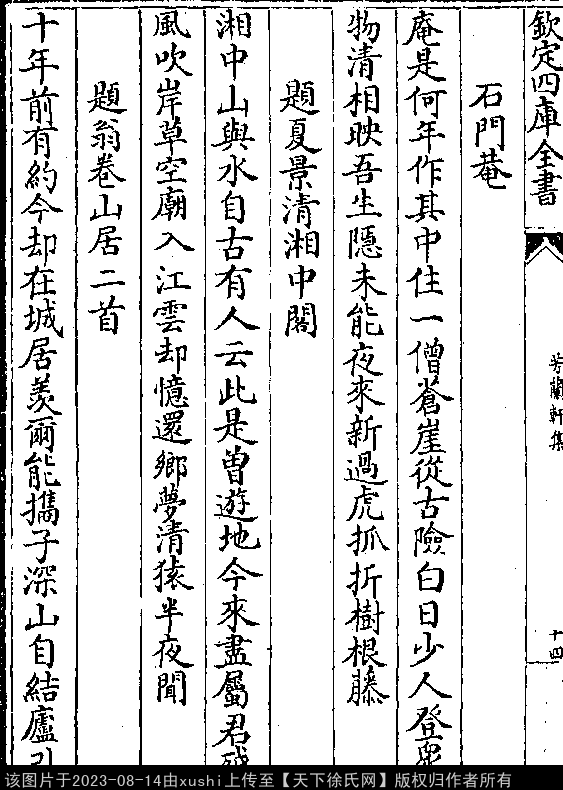 欽定四庫全書
芳蘭軒集
十四
石門菴
庵是何年作其中住一僧蒼崖從古險白日少人登衆
物清相映吾生隱未能夜來新過虎抓折樹根藤
題夏景清湘中閣
湘中山與水自古有人云此是曾遊地今來盡屬君
風吹岸草空廟入江雲却憶還鄉夢清猿半夜聞
題翁卷山居二首
十年前有約今却在城居羨爾能攜子深山自結廬引
该图片于2023-08-14由xushi上传至【天下徐氏网】版权归作者所有